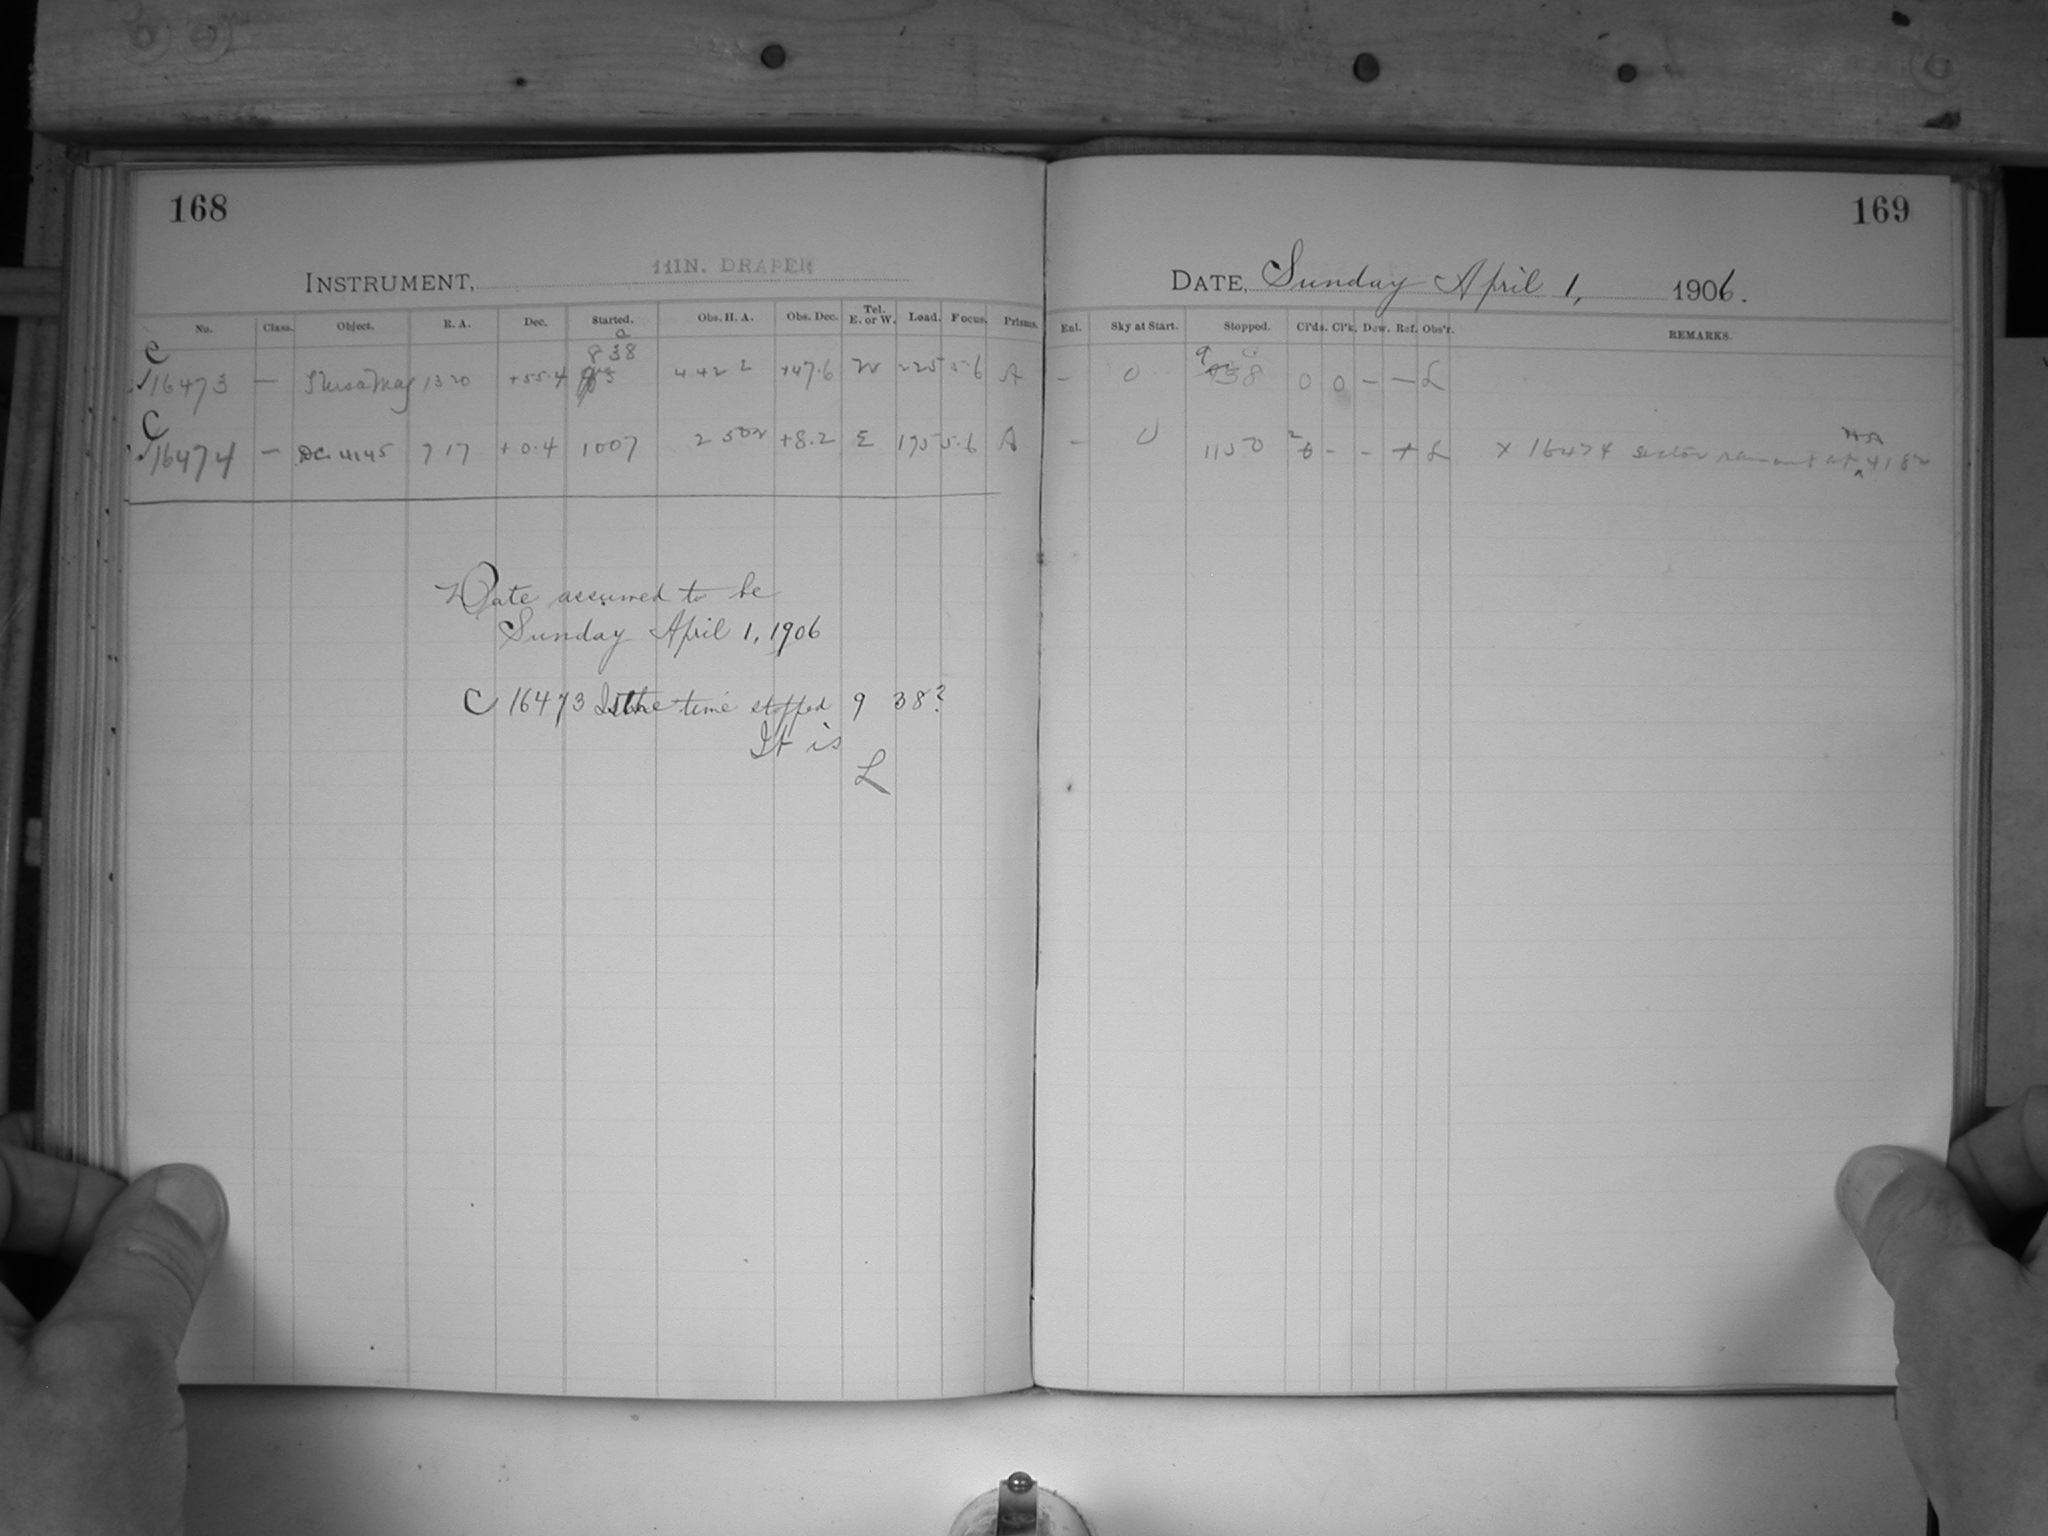 168
169
INSTRUMENT, 11IN. DRAPER
DATE, Sunday April 1, 1906.
No. Class. Object. R. A. Dec. Started. Obs. H. A. Obs. Dec. Tel. E. or W. Load. Focus. Prisms. Enl. Sky at Start. Stopped. Cl'ds. Cl'k. Dew. Ref. Obs'r. REMARKS.
C 16473 — 13 20 +55.4 8 38 4 42 2 +47.6 W 225 5.6 A – 0 9 38 0 0 – – L
C 16474 — DC. 4145 7 17 +0.4 1007 +8.2 E 195 5.6 A – 0 1150 – – + L x 16474 sector ran out at H.A. 4 18
Date assumed to be
Sunday April 1, 1906
C 16473 Is the time stopped 9 38?
It is
L